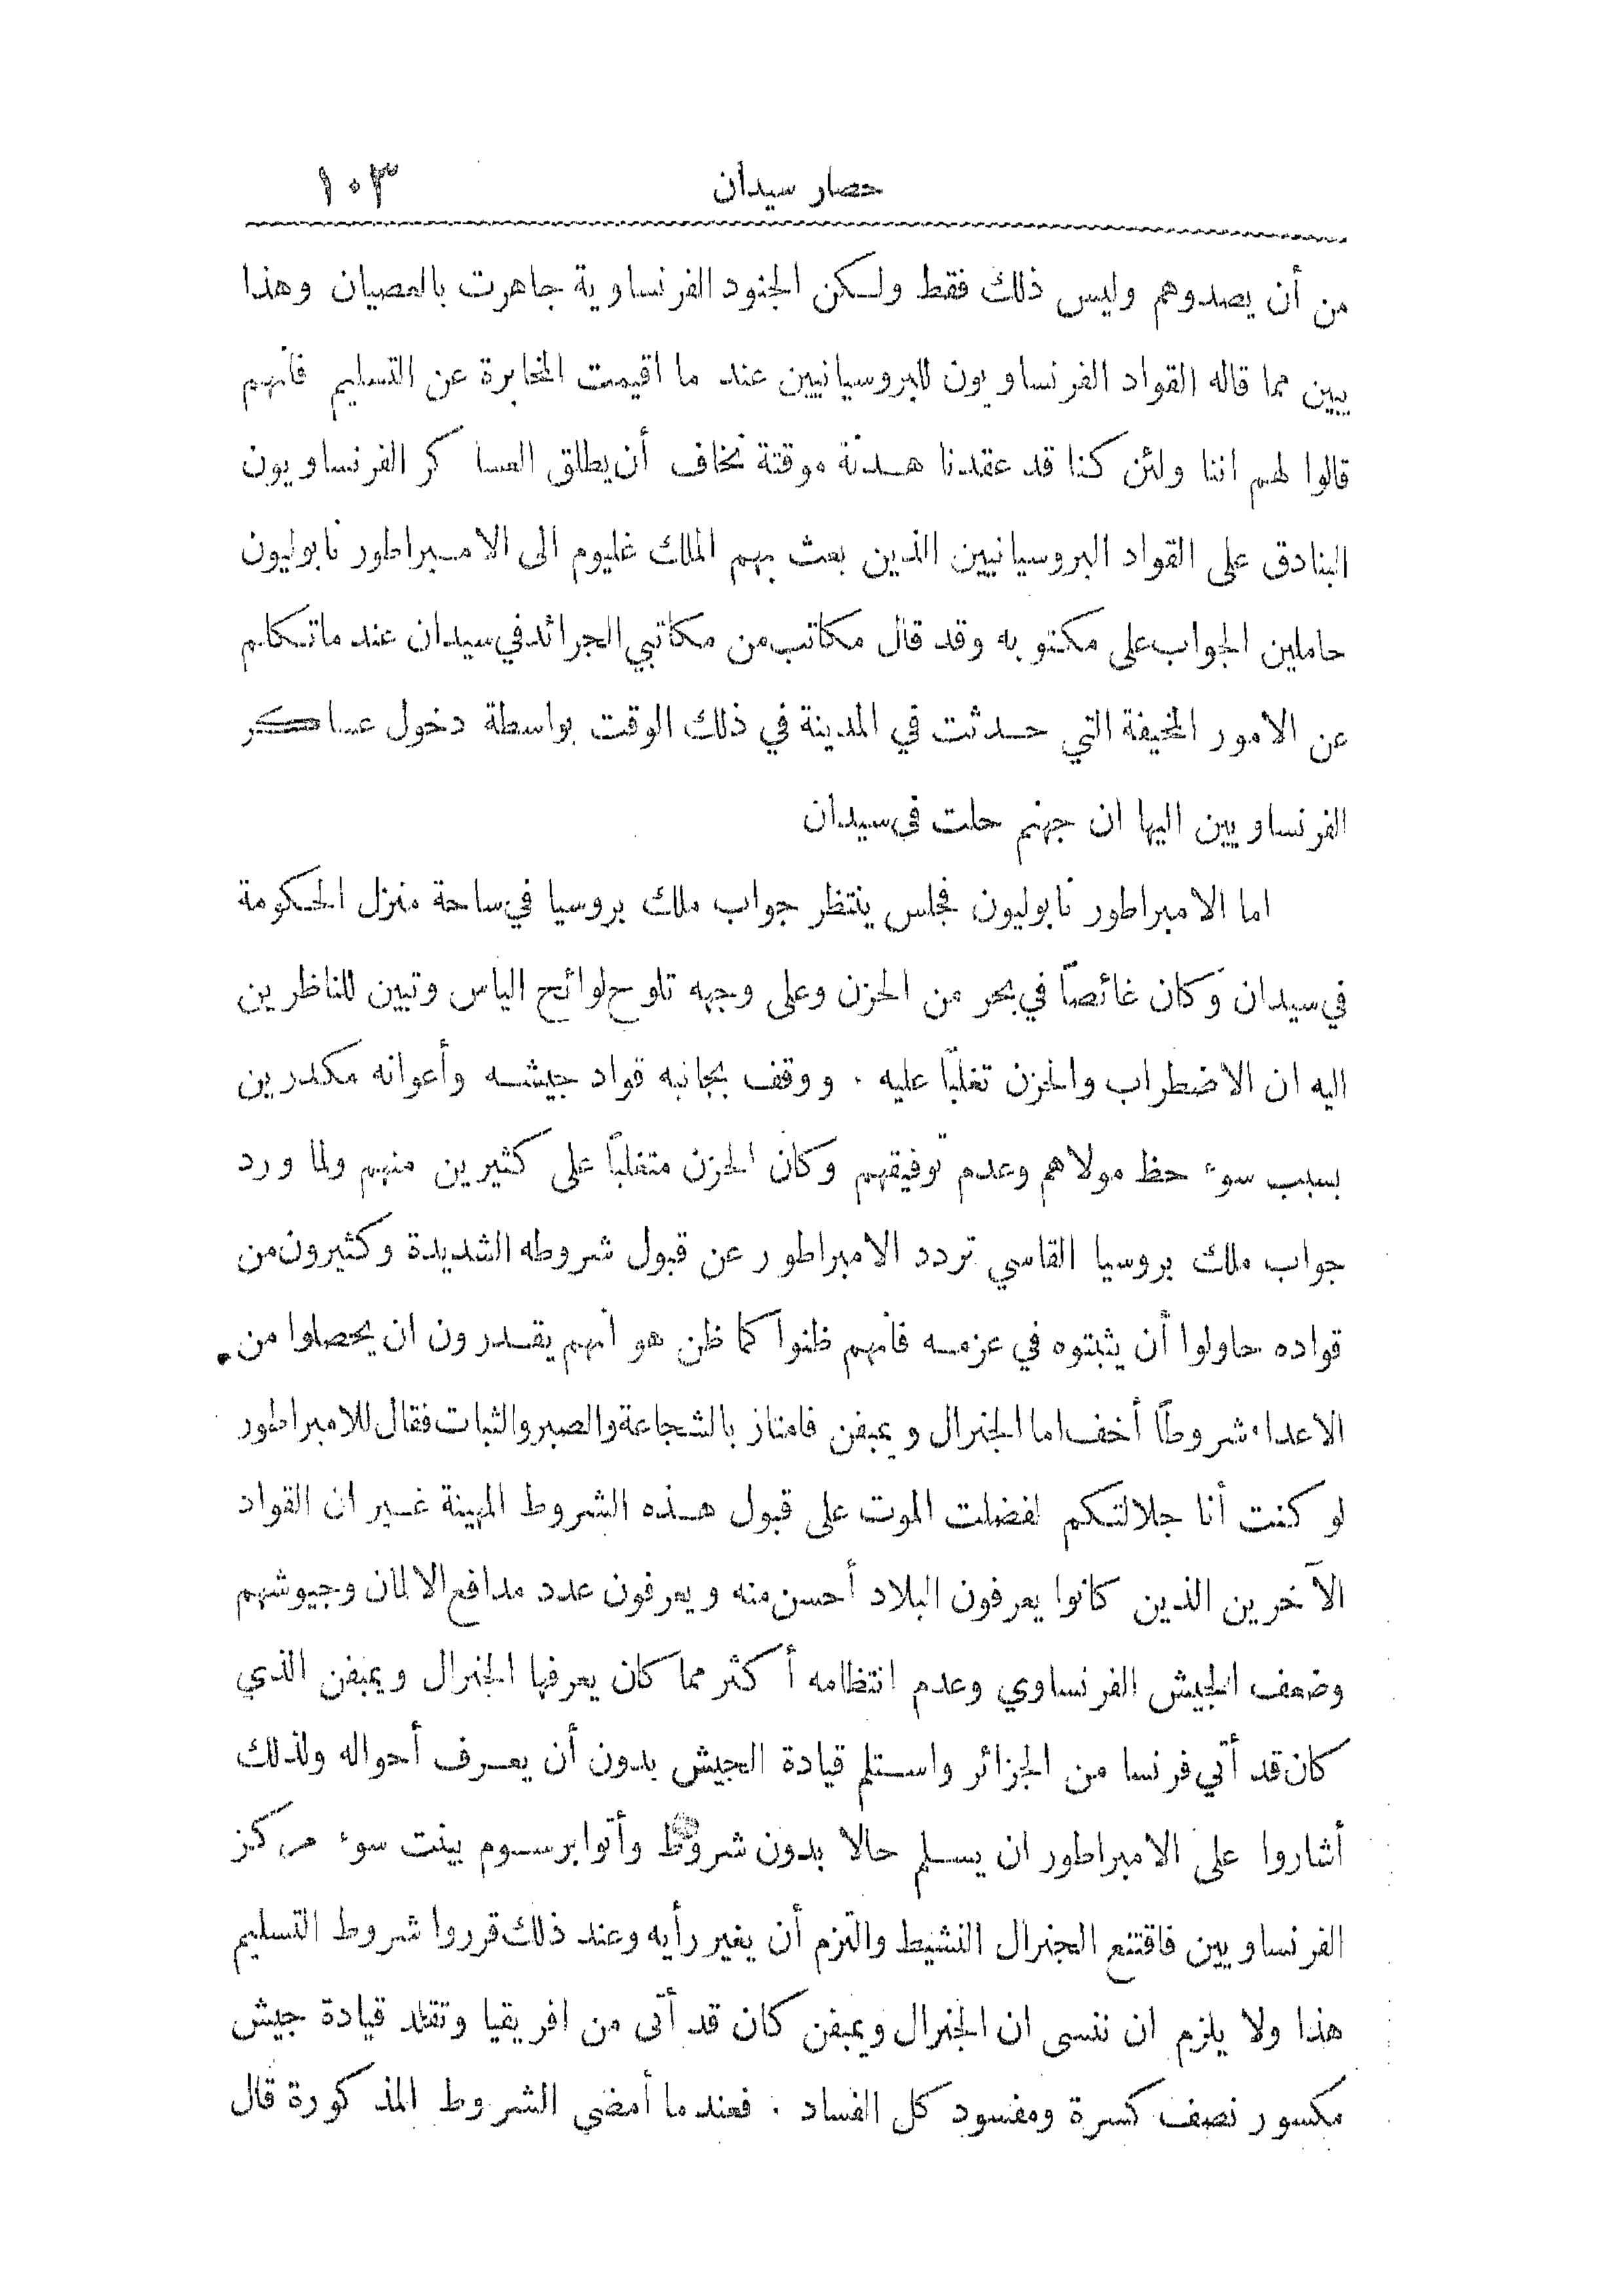 حصار سيدان ١٠٣
من أن يصدوهم وليس ذلك فقط ولكن الجنود الفرنساوية جاهرت بالعصيان وهذا
يبين مما قاله القواد الفرنساويون للبروسيانيين عند ما اقيمت المخابرة عن التسليم فأنهم
قالوا لهم اننا ولئن كنا قد عقدنا هدنة موقتة نخاف أن يطلق العساكر الفرنساويون
البنادق على القواد البروسيانيين الذين بعث بهم الملك غليوم الى الامبراطور نابوليون
حاملين الجواب على مكتوبه وقد قال مكاتب من مكاتبي الجرائد في سيدان عند ماتكلم
عن الامور المخيفة التي حدثت في المدينة في ذلك الوقت بواسطة دخول عساكر
الفرنساويين اليها ان جهنم حلت في سيدان
اما الامبراطور نابوليون فجلس ينتظر جواب ملك بروسيا في ساحة منزل الحكومة
في سيدان وكان غائصاً في بحر من الحزن وعلى وجهه تلوح لوائح الياس وتبين للناظرين
اليه ان الاضطراب والحزن تغلبّا عليه . ووقف بجانبه قواد جيشه وأعوانه مكدرين
بسبب سوء حظ مولاهم وعدم توفيقهم وكان الحزن متغلباً على كثيرين منهم ولما ورد
جواب ملك بروسيا القاسي تردد الامبراطور عن قبول شروطه الشديدة وكثيرون من
قواده حاولوا أن يثبتوه في عزمه فأنهم ظنوا كما ظن هو أنهم يقدرون ان يحصلوا من
الاعداء شروطاً أخف اما الجنرال ويمبفن فامتاز بالشجاعة والصبر والثبات فقال للامبراطور
لو كنت أنا جلالتكم لفضلت الموت على قبول هذه الشروط المهينة غير ان القواد
الآخرين الذين كانوا يعرفون البلاد أحسن منه ويعرفون عدد مدافع الالمان وجيوشهم
وضعف الجيش الفرنساوي وعدم انتظامه أكثر مما كان يعرفها الجنرال ويمبفن الذي
كان قد أتي فرنسا من الجزائر واستلم قيادة الجيش بدون أن يعرف أحواله ولذلك
أشاروا على الامبراطور ان يسلم حالا بدون شروط وأتوا برسوم بينت سوء مركز
الفرنساويين فاقتنع الجنرال النشيط والتزم أن يغير رأيه وعند ذلك قرروا شروط التسليم
هذا ولا يلزم ان ننسى ان الجنرال ويمبفن كان قد أتى من افريقيا وتقلد قيادة جيش
مكسور نصف كسرة ومفسود كل الفساد . فعند ما أمضي الشروط المذكورة قال